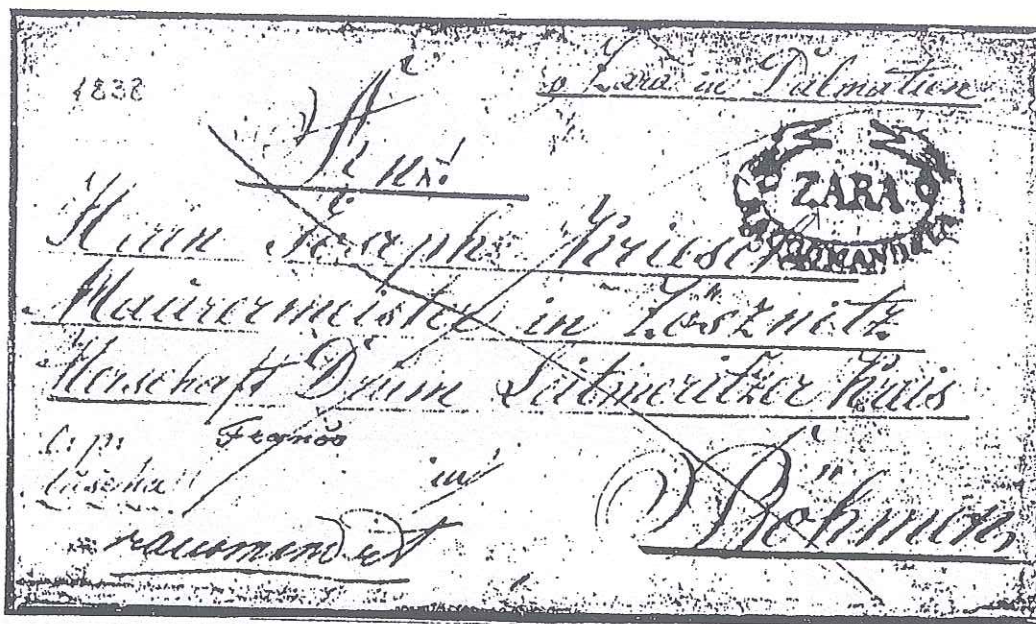 1838
v Zara in Dalmatien
An
ZARA
Herrn Joseph Kriesch
Maurermeister in Zösznitz
Herschaft Drum Leitmeritzer Krais
l: p: Franco
Auscha in
Böhmen,
recomandirt